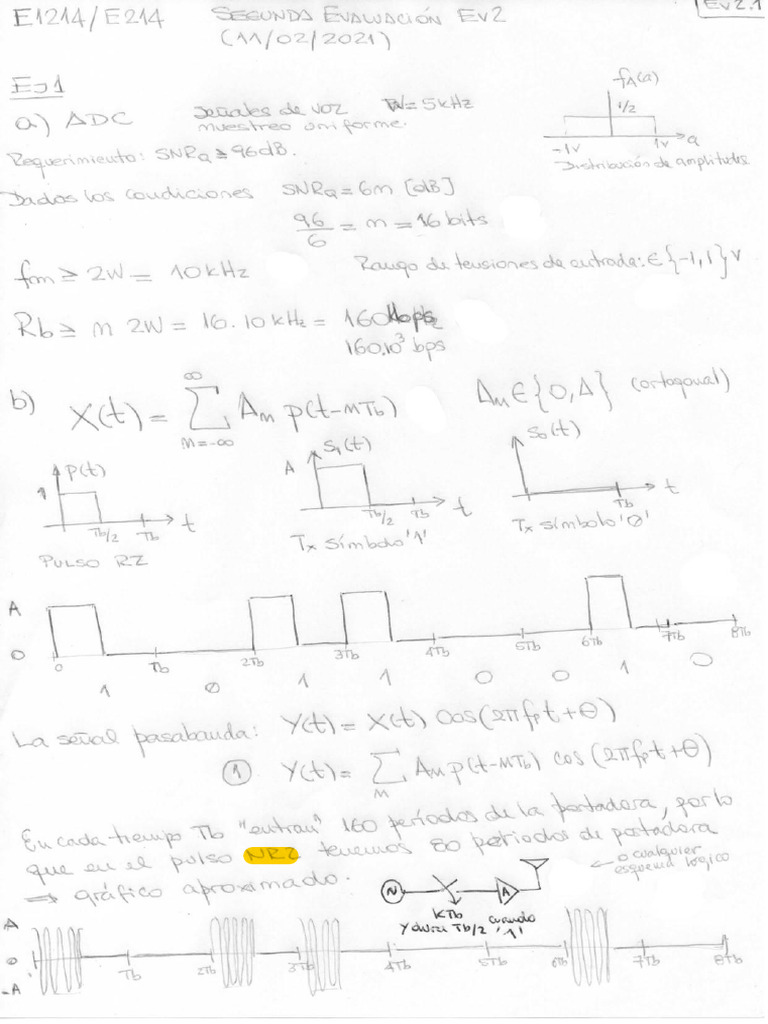 E1214/E214 SEGUNDA EVALUACIÓN EV2 EV2.1
(11/02/2021)
EJ1
a) ADC señales de voz W=5kHz
muestreo uniforme.
fA(a)
1/2
-1v 1v a
Distribución de amplitudes
Requerimiento: SNRq ≥ 96dB.
Dadas las condiciones SNRq = 6m [dB]
96/6 = m = 16 bits
fm ≥ 2W = 10kHz Rango de tensiones de entrada: ∈ {-1,1} V
Rb ≥ m 2W = 16.10kHz = 160kbps
160.10³ bps
b) X(t) = ∑ Am p(t-mTb) Am ∈ {0,A} (ortogonal)
∞
m=-∞
p(t) S1(t) S0(t)
1 A
Tb/2 Tb t Tb/2 Tb t Tb t
PULSO RZ Tx símbolo '1' Tx símbolo '0'
A
0
0 Tb 2Tb 3Tb 4Tb 5Tb 6Tb 7Tb 8Tb
1 0 1 1 0 0 1 0
La señal pasabanda: Y(t) = X(t) cos(2πfpt+θ)
① Y(t) = ∑ Am p(t-mTb) cos(2πfpt+θ)
m
En cada tiempo Tb "entran" 160 períodos de la portadora, por lo
que en el pulso NRZ tenemos 80 periodos de portadora
⇒ gráfico aproximado. ← o cualquier
esquema lógico
N A
KTb cuando
y dura Tb/2 '1'
A
0
-A
Tb 2Tb 3Tb 4Tb 5Tb 6Tb 7Tb 8Tb